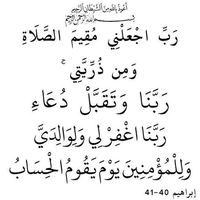 أعوذ بالله من الشيطان الرجيم
بسم الله الرحمن الرحيم
رَبِّ اجْعَلْنِي مُقِيمَ الصَّلَاةِ
وَمِن ذُرِّيَّتِي ۚ
رَبَّنَا وَتَقَبَّلْ دُعَاءِ
رَبَّنَا اغْفِرْ لِي وَلِوَالِدَيَّ
وَلِلْمُؤْمِنِينَ يَوْمَ يَقُومُ الْحِسَابُ
إبراهيم 40-41